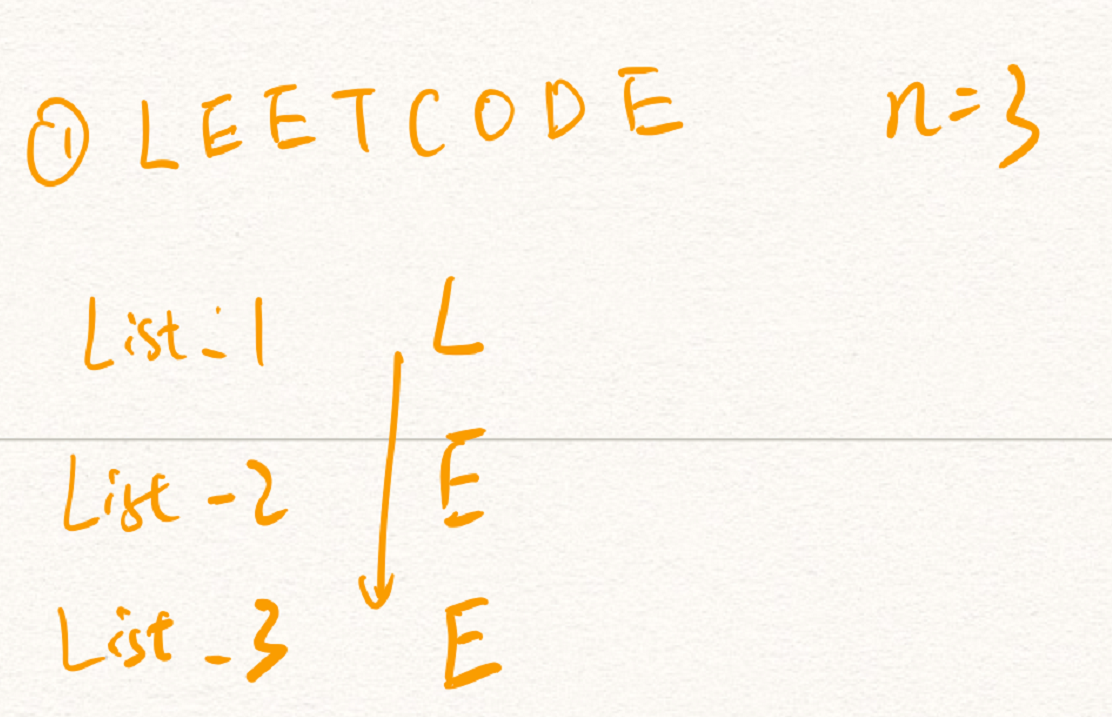 ① LEETCODE n=3
List-1 L
List-2 E
List-3 E